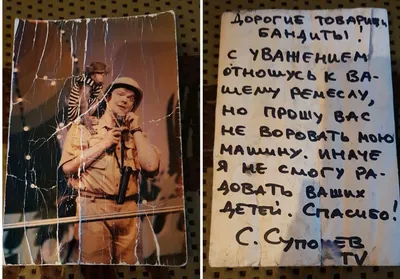 ДОРОГИЕ ТОВАРИЩИ
БАНДИТЫ!
С УВАЖЕНИЕМ
ОТНОШУСЬ К ВА-
ШЕМУ РЕМЕСЛУ,
НО ПРОШУ ВАС
НЕ ВОРОВАТЬ МОЮ
МАШИНУ. ИНАЧЕ
Я НЕ СМОГУ РА-
ДОВАТЬ ВАШИХ
ДЕТЕЙ. СПАСИБО!
С. СУПОНЕВ
TV